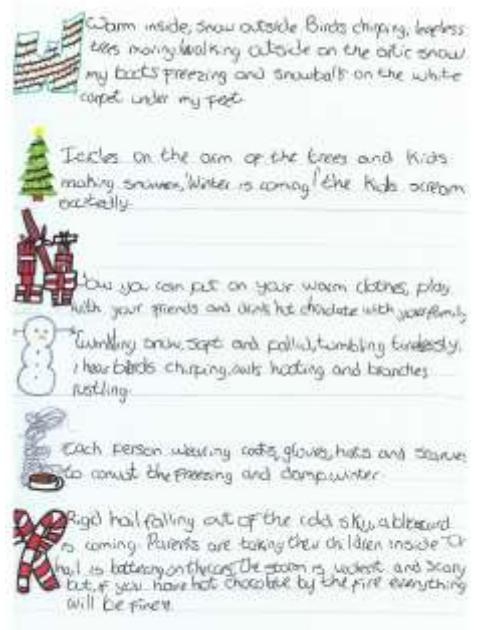 Warm inside, snow outside. Birds chirping, leafless
trees moving. Walking outside on the artic snow
my boots freezing and snowballs on the white
carpet under my feet.
Icicles on the arm of the trees and kids
making snowmen, 'Winter is coming!' the kids scream
excitedly.
Now you can put on your warm clothes, play
with your friends and drink hot chocolate with your family
Tumbling snow, soft and pallid, tumbling
I hear birds chirping, owls hooting and branches
rustling.
Each person wearing coats, gloves, hats and scarves
to the freezing and damp winter.
Rigid hail falling out of the cold sky, a
is coming. Parents are taking their children inside. The
hail is battering on the cars. The storm is violent and scary
but, if you have hot chocolate by the fire everything
will be fine!!